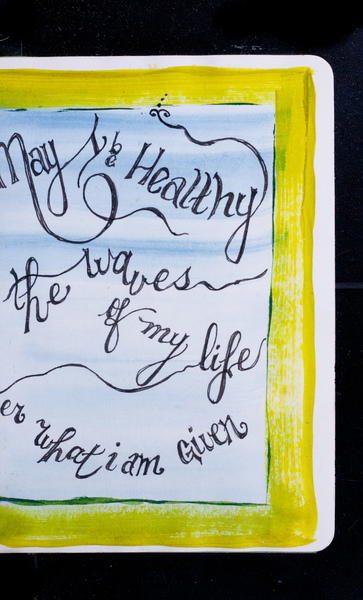 May I be Healthy
the waves
of my life
er what i am Given